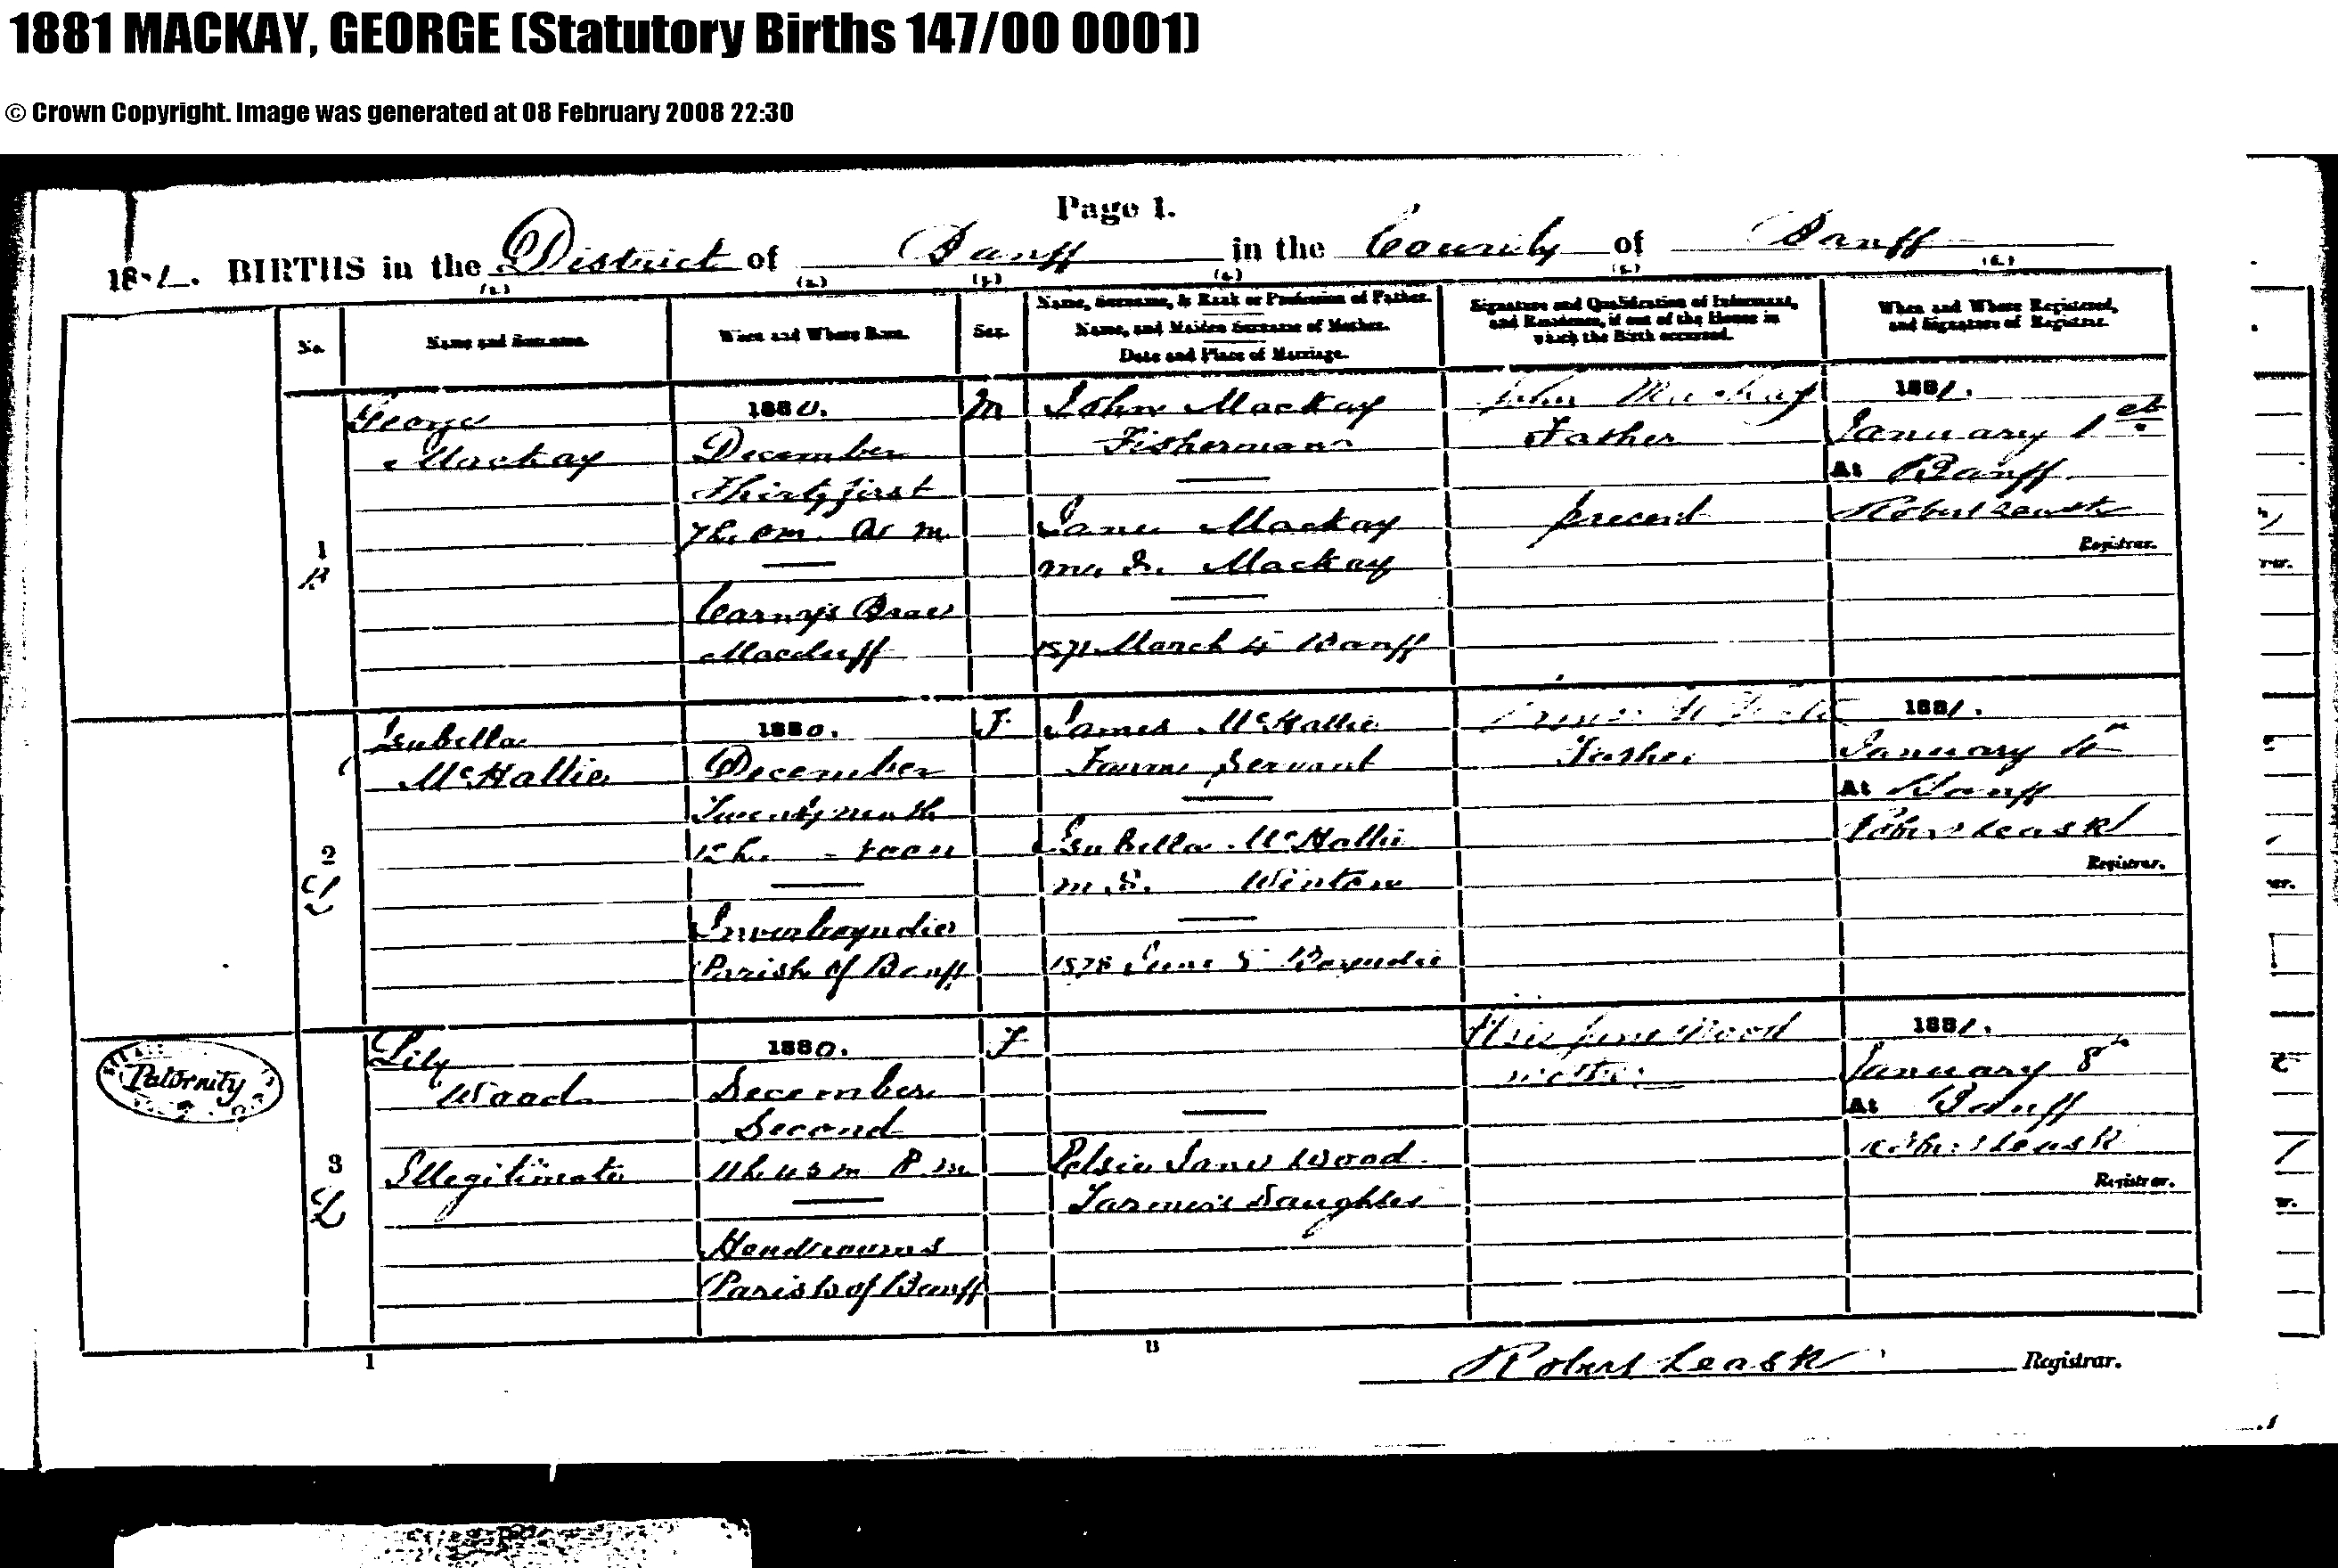 1881 MACKAY, GEORGE (Statutory Births 147/00 0001)
© Crown Copyright. Image was generated at 08 February 2008 22:30
Page 1.
BIRTHS in the District of Banff in the County of Banff
No.
Name and Surname.
When and Where Born.
Sex.
Name, Surname, & Rank or Profession of Father.
Name, and Maiden Surname of Mother.
Date and Place of Marriage.
Signature and Qualification of Informant,
and Residence, if out of the House in
which the Birth occurred.
When and Where Registered,
and Signature of Registrar.
1
George
Mackay
1880.
December
Thirty first
Macduff
M
John Mackay
Fisherman
Jane Mackay
m. S. Mackay
1871 March 4 Banff
John Mackay
Father
present
1881.
January 1st
At Banff
Robert Leask
Registrar.
2
Isabella
McHallie
1880.
December
Twenty ninth
12 h. noon
Inverboyndie
Parish of Banff
F
James McHallie
Farm Servant
Isabella McHallie
m. S. Winton
1878 June 5 Boyndie
Father
1881.
January 4th
At Banff
Robert Leask
Registrar.
Paternity
3
Lily
Wood
Illegitimate
1880.
December
Second
P. m.
Parish of Banff
F
Elsie Jane Wood
Farmer's Daughter
Elsie Jane Wood
mother
1881.
January 8th
At Banff
Robert Leask
Registrar.
1
B
Robert Leask Registrar.